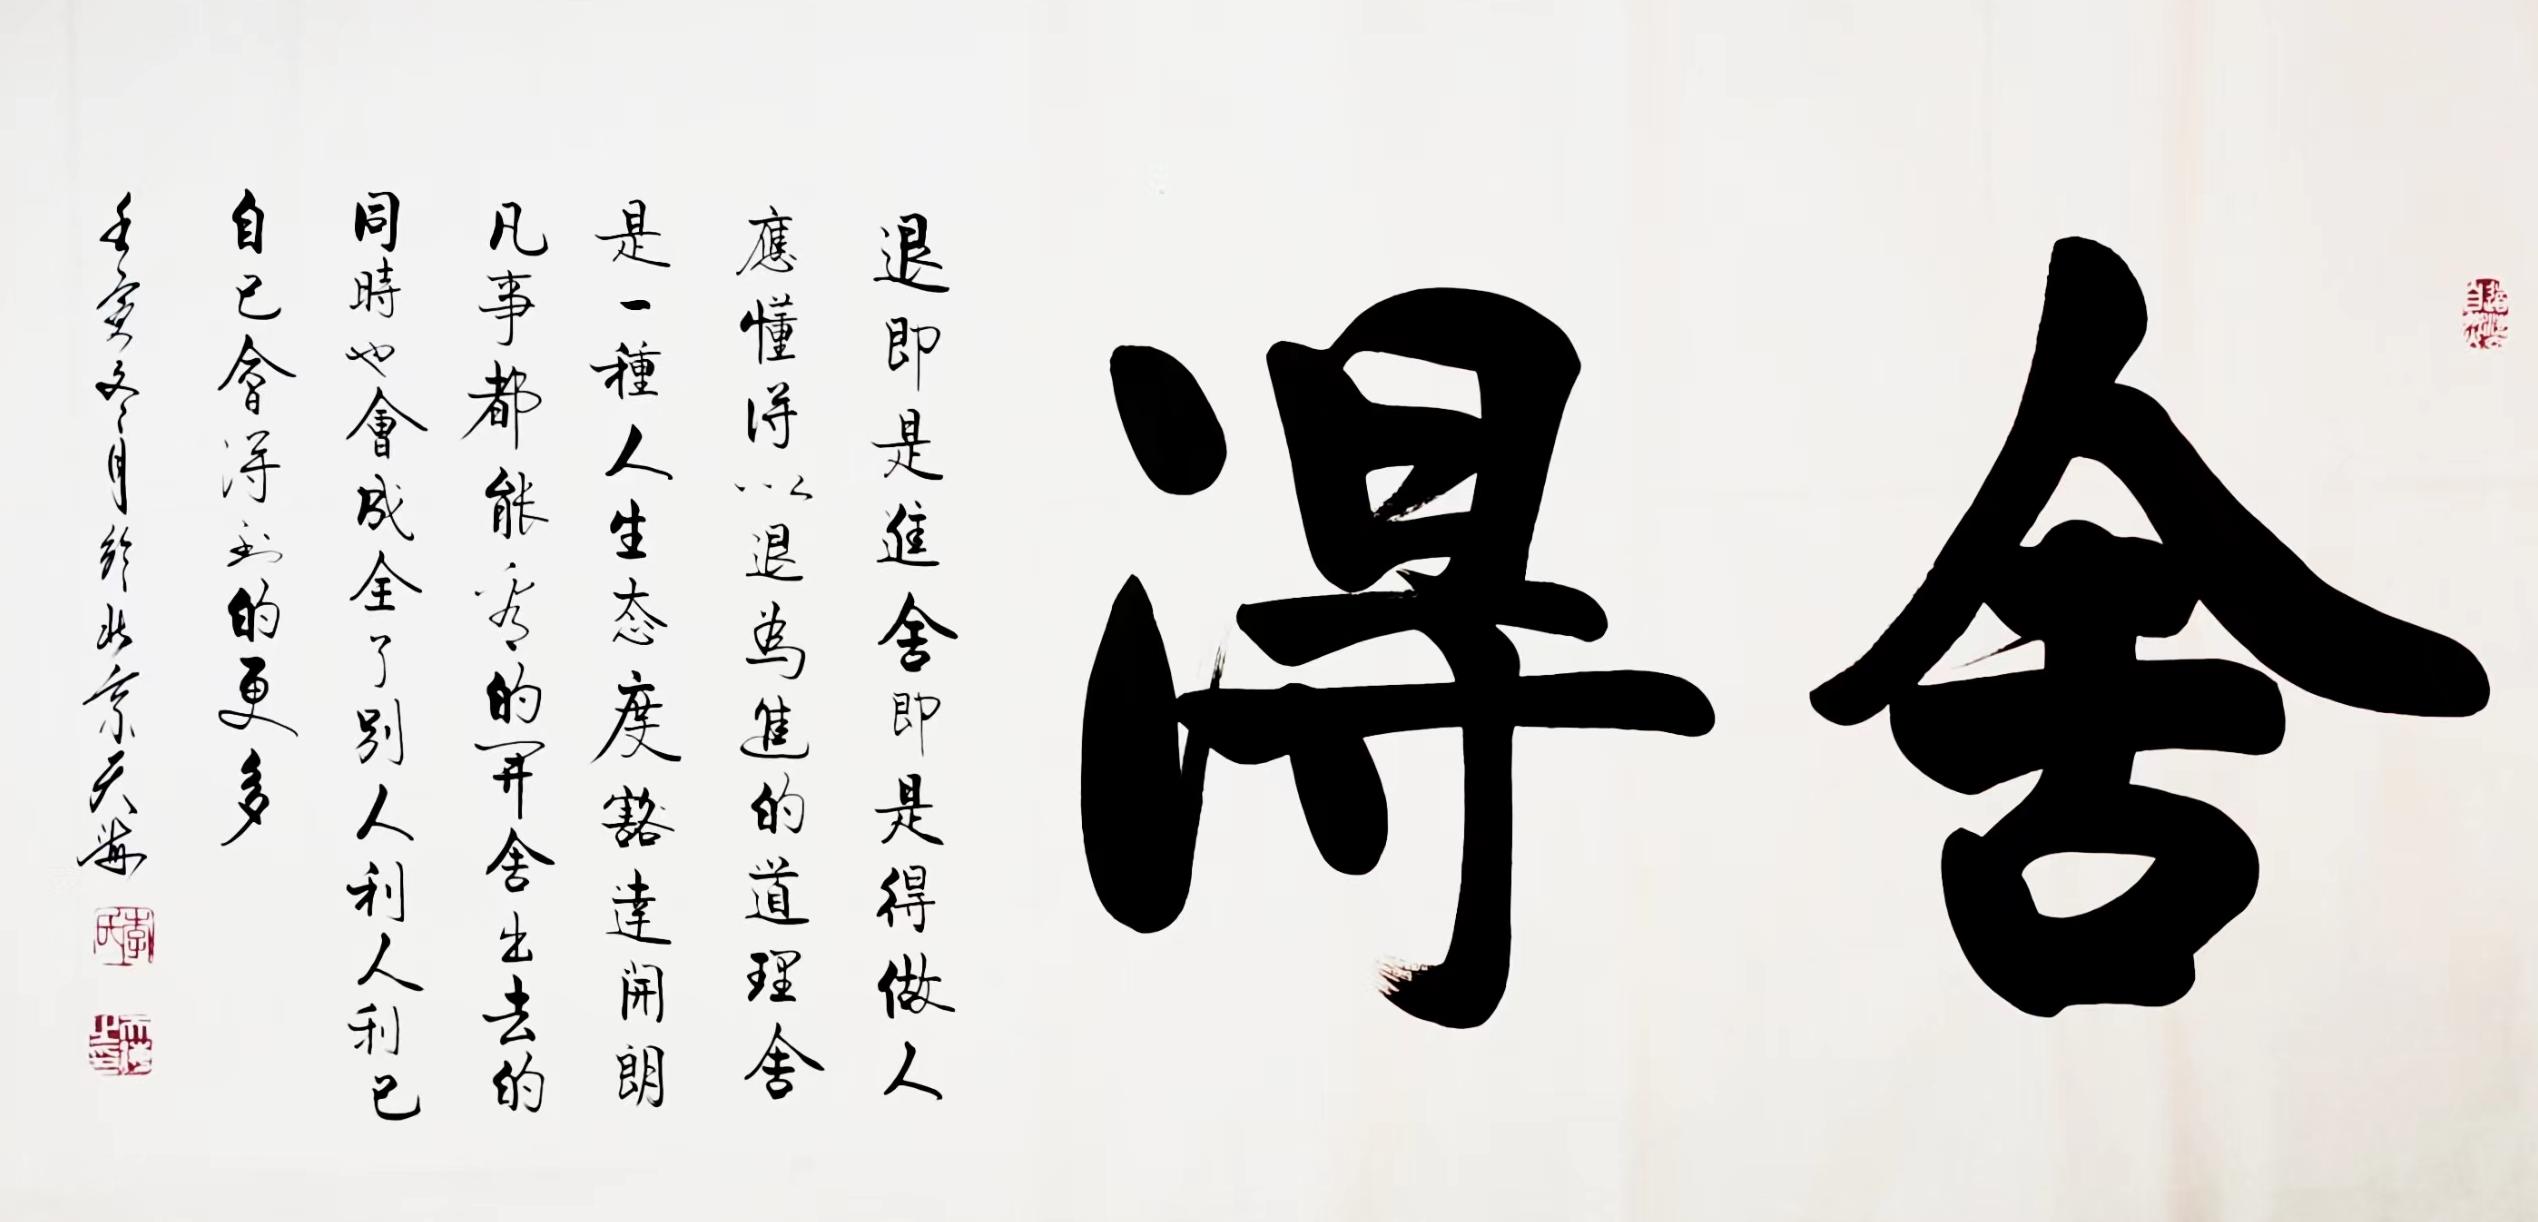 舍得
退即是進舍即是得做人
應懂得以退為進的道理舍
是一種人生态度豁達開朗
凡事都能看的開舍出去的
同時也會成全了別人利人利己
自己會得到的更多
壬寅冬月於北京天華
李氏